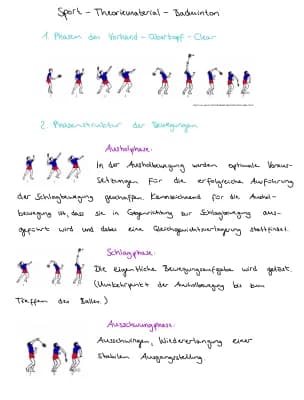 Sport - Theoriematerial - Badminton
1. Phasen des Vorhand-Überkopf-Clear
2. Phasenstruktur der Bewegungen
Ausholphase:
In der Ausholbewegung werden optimale Voraus-
setzungen für die erfolgreiche Ausführung
der Schlagbewegung geschaffen. Kennzeichnend für die Aushol-
bewegung ist, dass sie in Gegenrichtung zur Schlagbewegung aus-
geführt wird und dabei eine Gleichgewichtsverlagerung stattfindet.
Schlagphase:
Die eigentliche Bewegungsaufgabe wird gelöst.
(Umkehrpunkt der Ausholbewegung bis zum
Treffen des Balles.)
Ausschwungphase:
Ausschwingen, Wiedererlangung einer
stabilen Ausgangsstellung